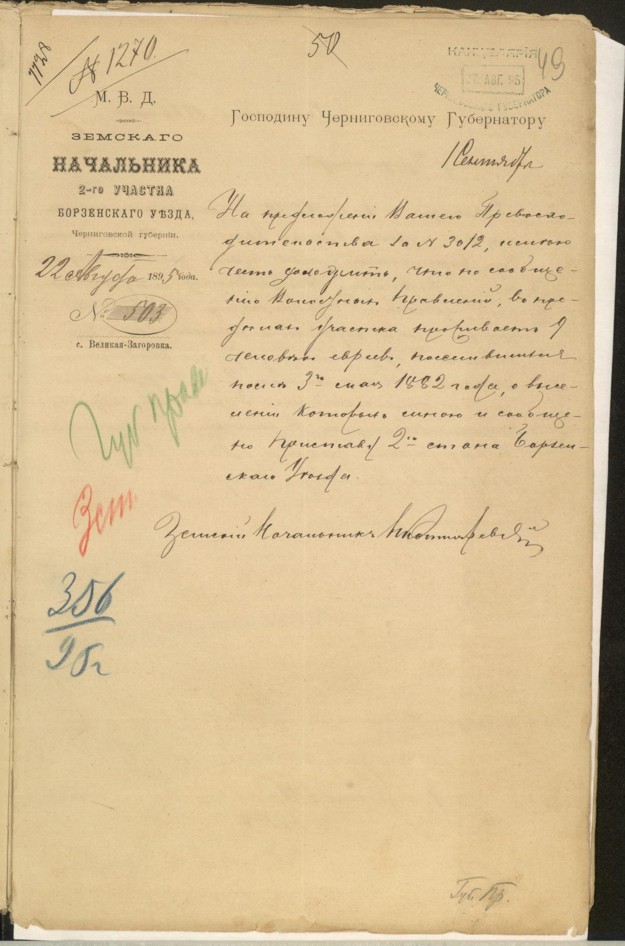 7728
№ 1270.
50
КАНЦЕЛЯРІЯ
АВГ. 95
ЧЕРНИГОВСКАГО ГУБЕРНАТОРА
49
М. В. Д.
ЗЕМСКАГО
НАЧАЛЬНИКА
2-го УЧАСТКА
БОРЗЕНСКАГО УѢЗДА,
Черниговской губерніи.
22 Августа 1895 года.
№ 503
с. Великая-Загоровка.
Господину Черниговскому Губернатору
1 Сентября
На предложеніе Вашего Превосхо-
дительства за № 3012, имѣю
честь доложить, что по сообще-
нію Волостныхъ Правленій, въ пре-
дѣлахъ участка проживаетъ 9
человѣкъ евреевъ, поселившихся
послѣ 3го мая 1882 года, о высе-
леніи которыхъ мною и сообще-
но Приставу 2го стана Борзен-
скаго Уѣзда.
Земскій Начальникъ
Губ прав
3 ст.
356
95 г
Губ. Пр.